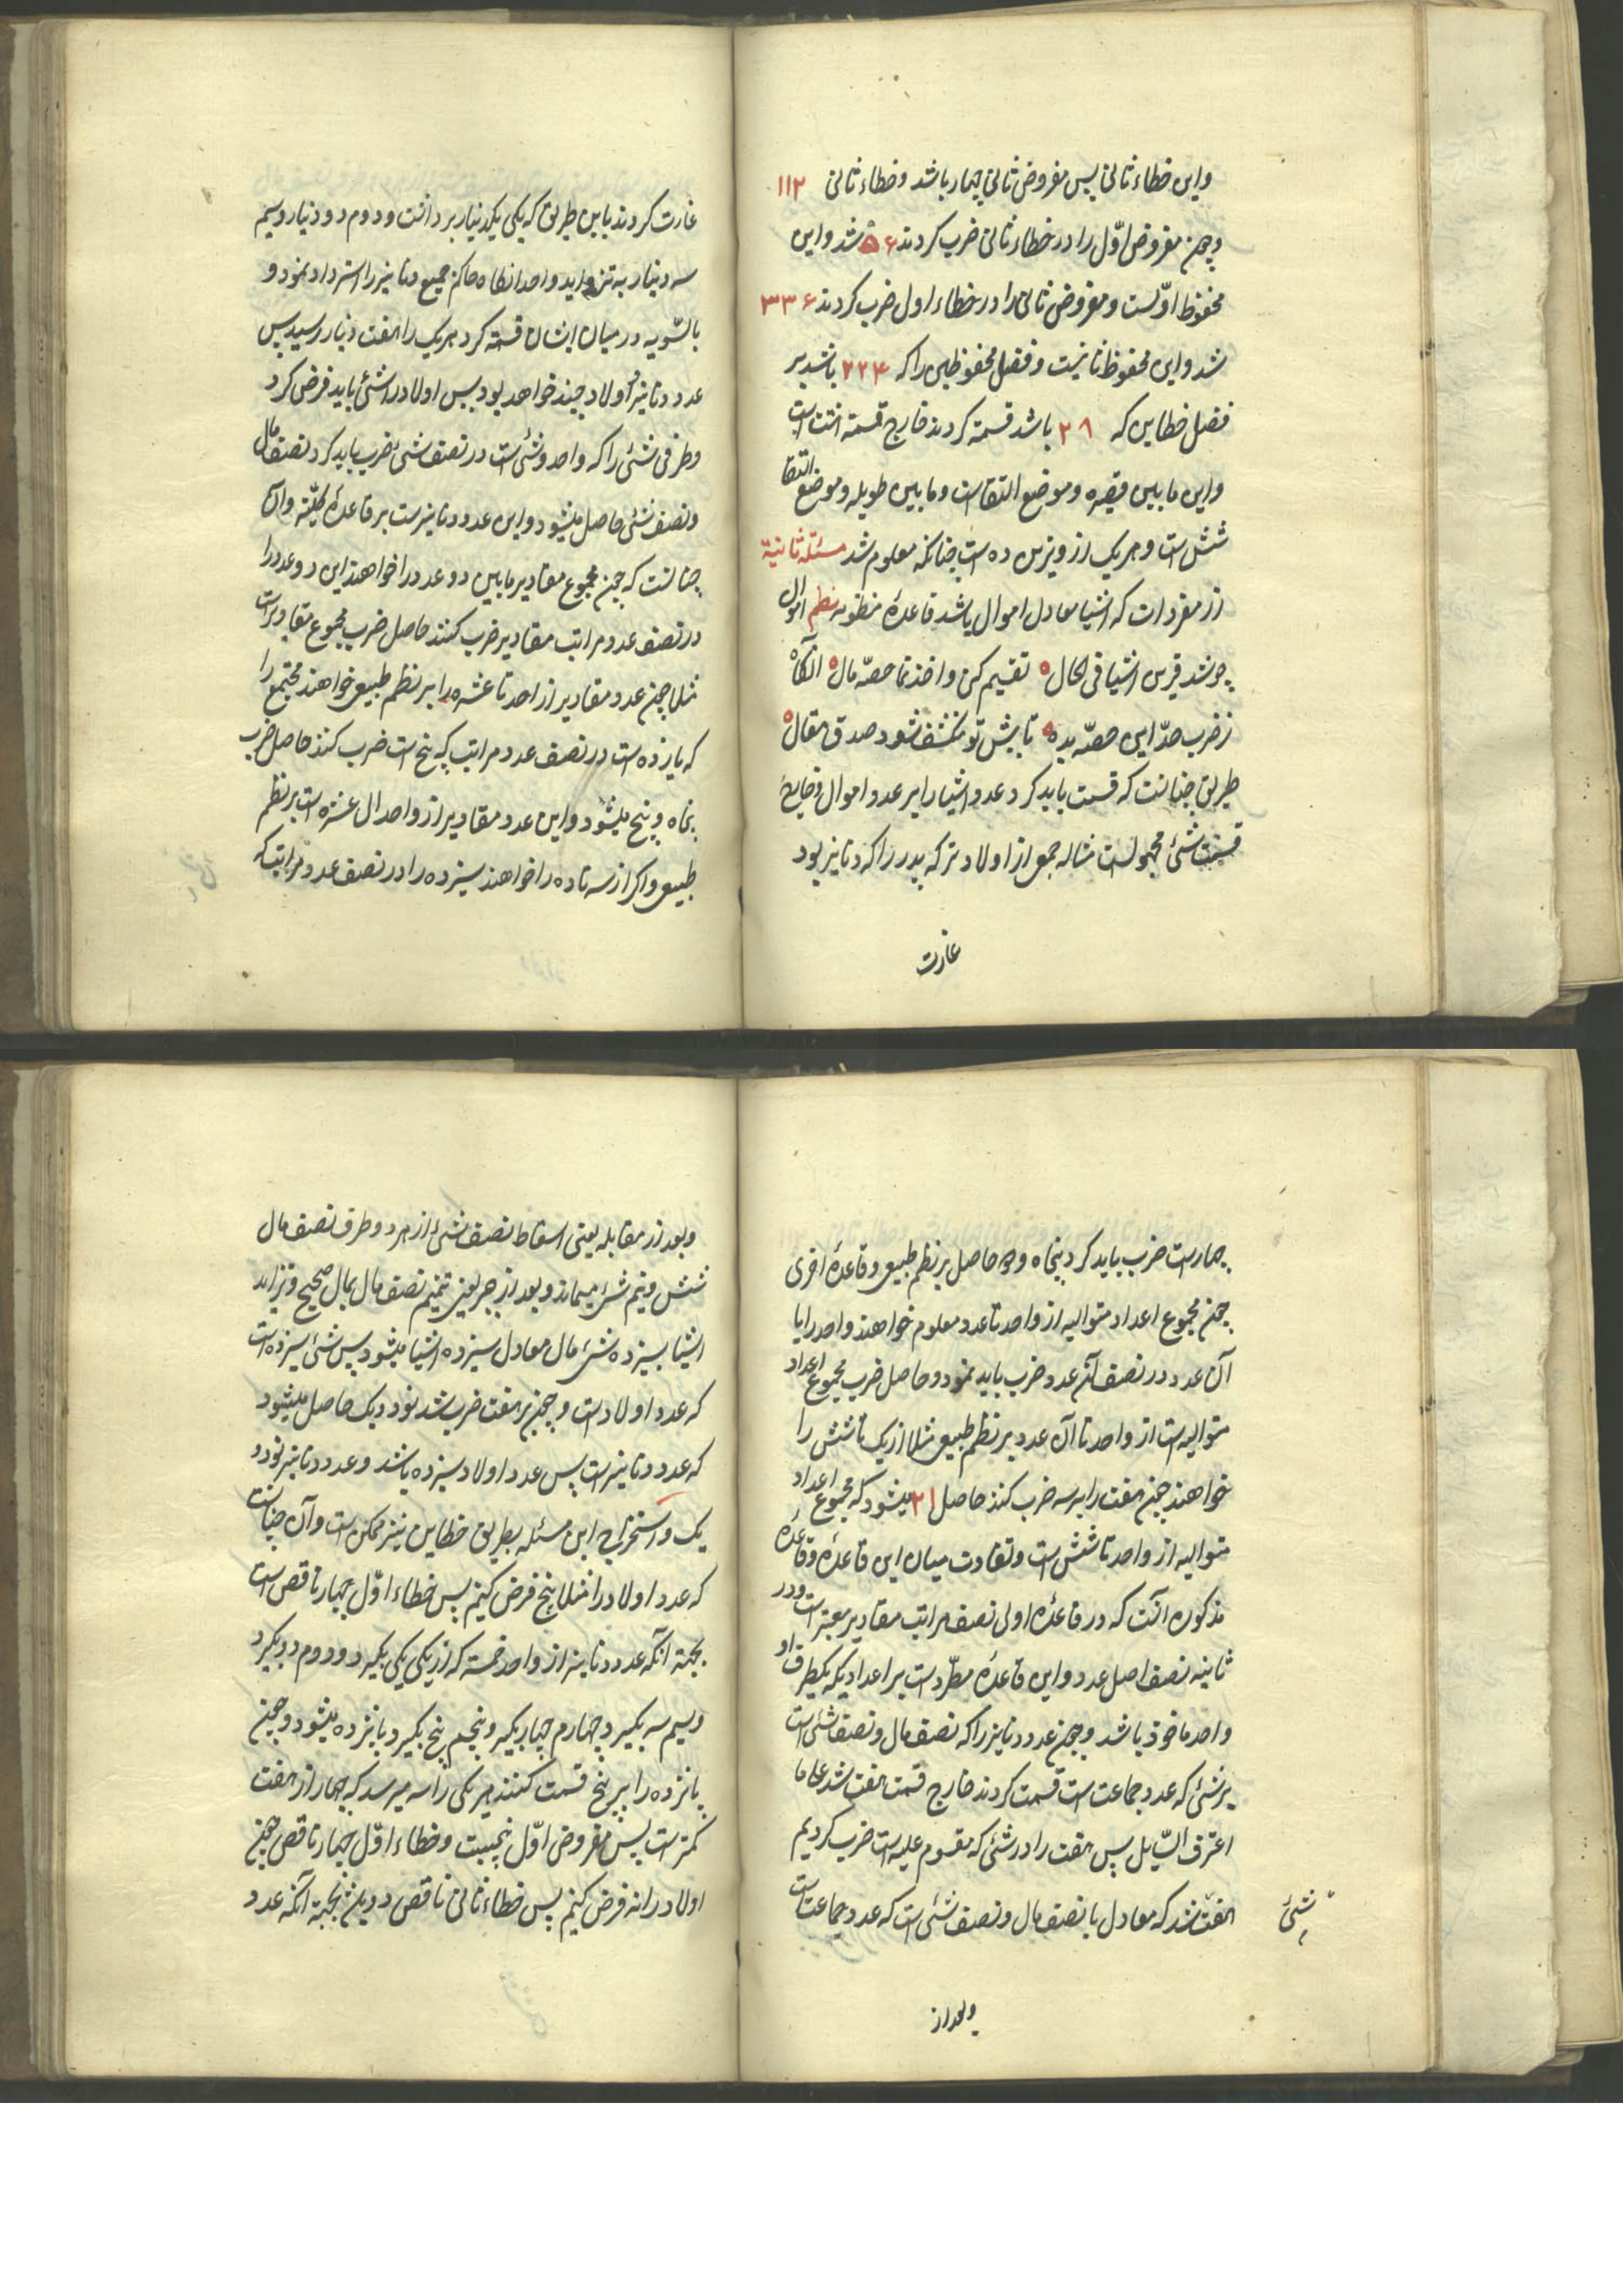 واین خطاء ثانی پس مفروض ثانی چهار باشد و خطاء ثانی ۱۱۲
وچون مفروض اوّل را در خطاء ثانی ضرب کردند ۵۶۰ شد واین
محفوظ اوّلست و مفروض ثانی را در خطاء اول ضرب کردند ۳۳۶
شد و این محفوظ ثانیست و فضل محفوظین را که ۲۲۴ باشد بر
فضل خطاین که ۲۸ باشد قسمة کردند خارج قسمة است
واین مابین قصیره و موضع التقاست و مابین طویله و موضع التقا
شش است و هر یک از وترین ده است چنانکه معلوم شد مسئله ثانیة
از مفردات که اشیا معادل اموال باشد قاعدهٔ منظومه نظم اموال
چو شد قرین اشیا فی الحال تقسیم کن و اخذ نما حصّه مال آنگاه
ز ضرب حدّ این حصّه بده تا پیش تو منکشف شود صدق مقال
طریق چنانست که قسمت باید کرد عدد اشیا را بر عدد اموال و خارج
قسمت شئ مجهولست مثاله جمعی از اولاد ترکه پدر را که دنانیر بود
غارت
غارت کردند باین طریق که یکی یکدینار برداشت و دوم دو دینار و سیم
سه دینار به تزاید واحد انگاه حاکم جمیع دنانیر را استرداد نمود و
بالسّویه در میان ایشان قسمة کرد هر یک را هفت دینار رسید پس
عدد دنانیر و اولاد چند خواهد بود پس اولاد را شئ باید فرض کرد
وطرفی شئ را که واحد و شئ است در نصف شئ ضرب باید کرد نصف مال
و نصف شئ حاصل میشود واین عدد دنانیرست بر قاعدهٔ کلیّه وآن
چنانست که چون مجموع مقادیر مابین دو عدد را خواهند این دو عدد را
در نصف عدد مراتب مقادیر ضرب کنند حاصل ضرب مجموع مقادیر است
مثلا چون عدد مقادیر از احد تا عشره را بر نظم طبیعی خواهند مجتمع را
که یازده است در نصف عدد مراتب که پنج است ضرب کنند حاصل ضرب
پنجاه و پنج میشود واین عدد مقادیر از واحد الی عشره است بر نظم
طبیعی واکر از سه تا ده را خواهند سیزده را در نصف عدد مراتب که
چهارست ضرب باید کرد پنجاه و دو حاصل بر نظم طبیعی و قاعدهٔ اخری
چون مجموع اعداد متوالیه از واحد تا عدد معلوم خواهند واحد را با
آن عدد در نصف آن عدد ضرب باید نمود و حاصل ضرب مجموع اعداد
متوالیه است از واحد تا آن عدد بر نظم طبیعی مثلا از یک تا شش را
خواهند چون هفت را بر سه ضرب کنند حاصل ۲۱ میشود که مجموع اعداد
متوالیه از واحد تا شش است و تفاوت میان این قاعده و قاعدهٔ
مذکوره آنست که در قاعدهٔ اولی نصف مراتب مقادیر معتبر است و در
ثانیه نصف اصل عدد واین قاعده مطرّد است بر اعدادیکه یکطرف او
واحد ماخوذ باشد و چون عدد دنانیر را که نصف مال و نصف شئ است
بر شئ که عدد جماعت است قسمت کردند خارج قسمت هفت شد علی ما
اعترف السّایل پس هفت را در شئ که مقسوم علیه است ضرب کردیم
هفت شد که معادل با نصف مال و نصف شئ است که عدد جماعت است
شئ
وبعد از
وبعد از مقابله یعنی اسقاط نصف شئ از هر دو طرف نصف مال
شش و نیم شئ میماند و بعد از جبر یعنی تتمیم نصف مال بمال صحیح و تزاید
اشیا بسیزده شئ مال معادل سیزده اشیا میشود پس شئ سیزده است
که عدد اولاد است و چون بر هفت ضرب شد نود و یک حاصل میشود
که عدد دنانیر است پس عدد اولاد سیزده باشد و عدد دنانیر نود و
یک و استخراج این مسئله بطریق خطاین نیز ممکن است وآن چنانست
که عدد اولاد را مثلا پنج فرض کنیم پس خطاء اوّل چهار ناقص است
بجهة آنکه عدد دنانیر از واحد خمسه که از یکی یکی بگیرد و دوم دو بگیرد
وسیم سه بگیرد و چهارم چهار بگیرد و پنجم پنج بگیرد پانزده میشود و چون
پانزده را بر پنج قسمت کنند هر یکی را سه میرسد که چهار از هفت
کمتر است پس مفروض اوّل پنجست و خطاء اوّل چهار ناقص چون
اولاد را نه فرض کنیم پس خطاء ثانی ناقص دو میشود بجهة آنکه عدد